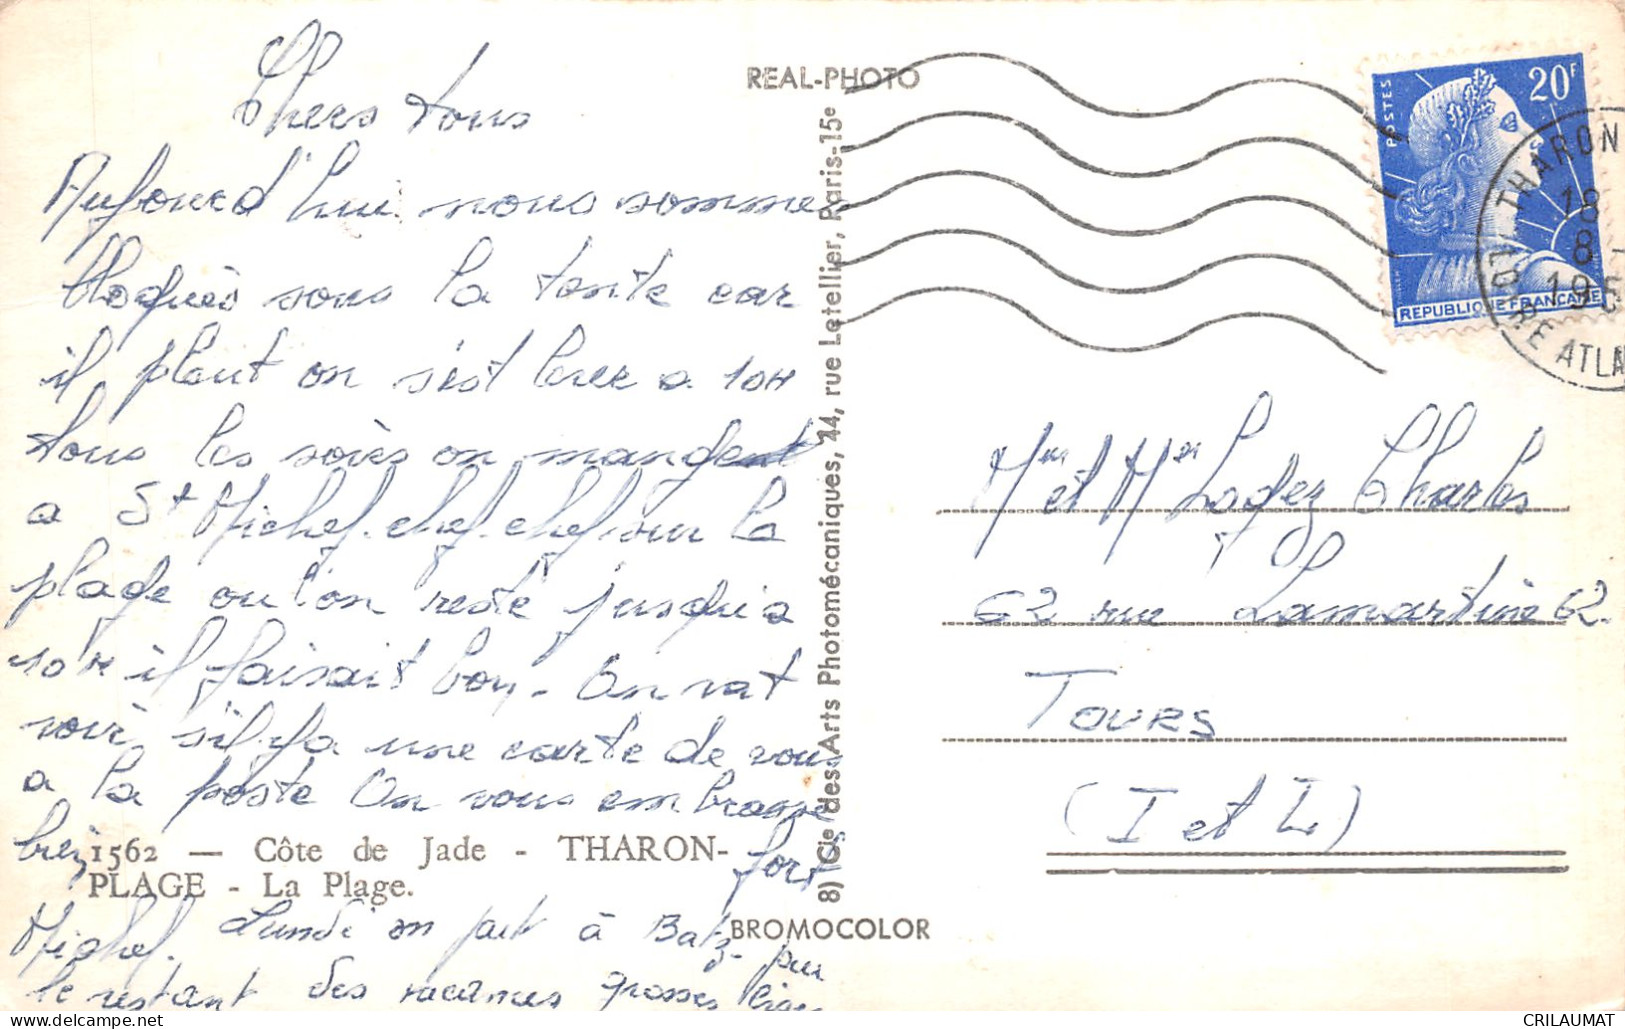 Chers tous
Aujourd'hui nous sommes
bloqués sous la tente car
il pleut on s'est levez a 10H
tous les soirs on mangent
a St Michel-chef-chef sur la
plage ou l'on reste jusqu'a
10H il faisait bon. On vat
voir s'il y a une carte de vous
a la poste On vous embrasse
bien fort
1562 — Côte de Jade - THARON-
PLAGE - La Plage.
Michel. Lundi on part à Batz pour
le restant des vacances grosses bises
REAL-PHOTO
8) Cie des Arts Photomécaniques, 44, rue Letellier, Paris-15e
BROMOCOLOR
POSTES
20F
REPUBLIQUE FRANÇAISE
THARON
18
8
195
LOIRE ATLA
Mr et Mme Lopez Charles
62 rue Lamartine 62.
TOURS
(I et L)
CRILAUMAT